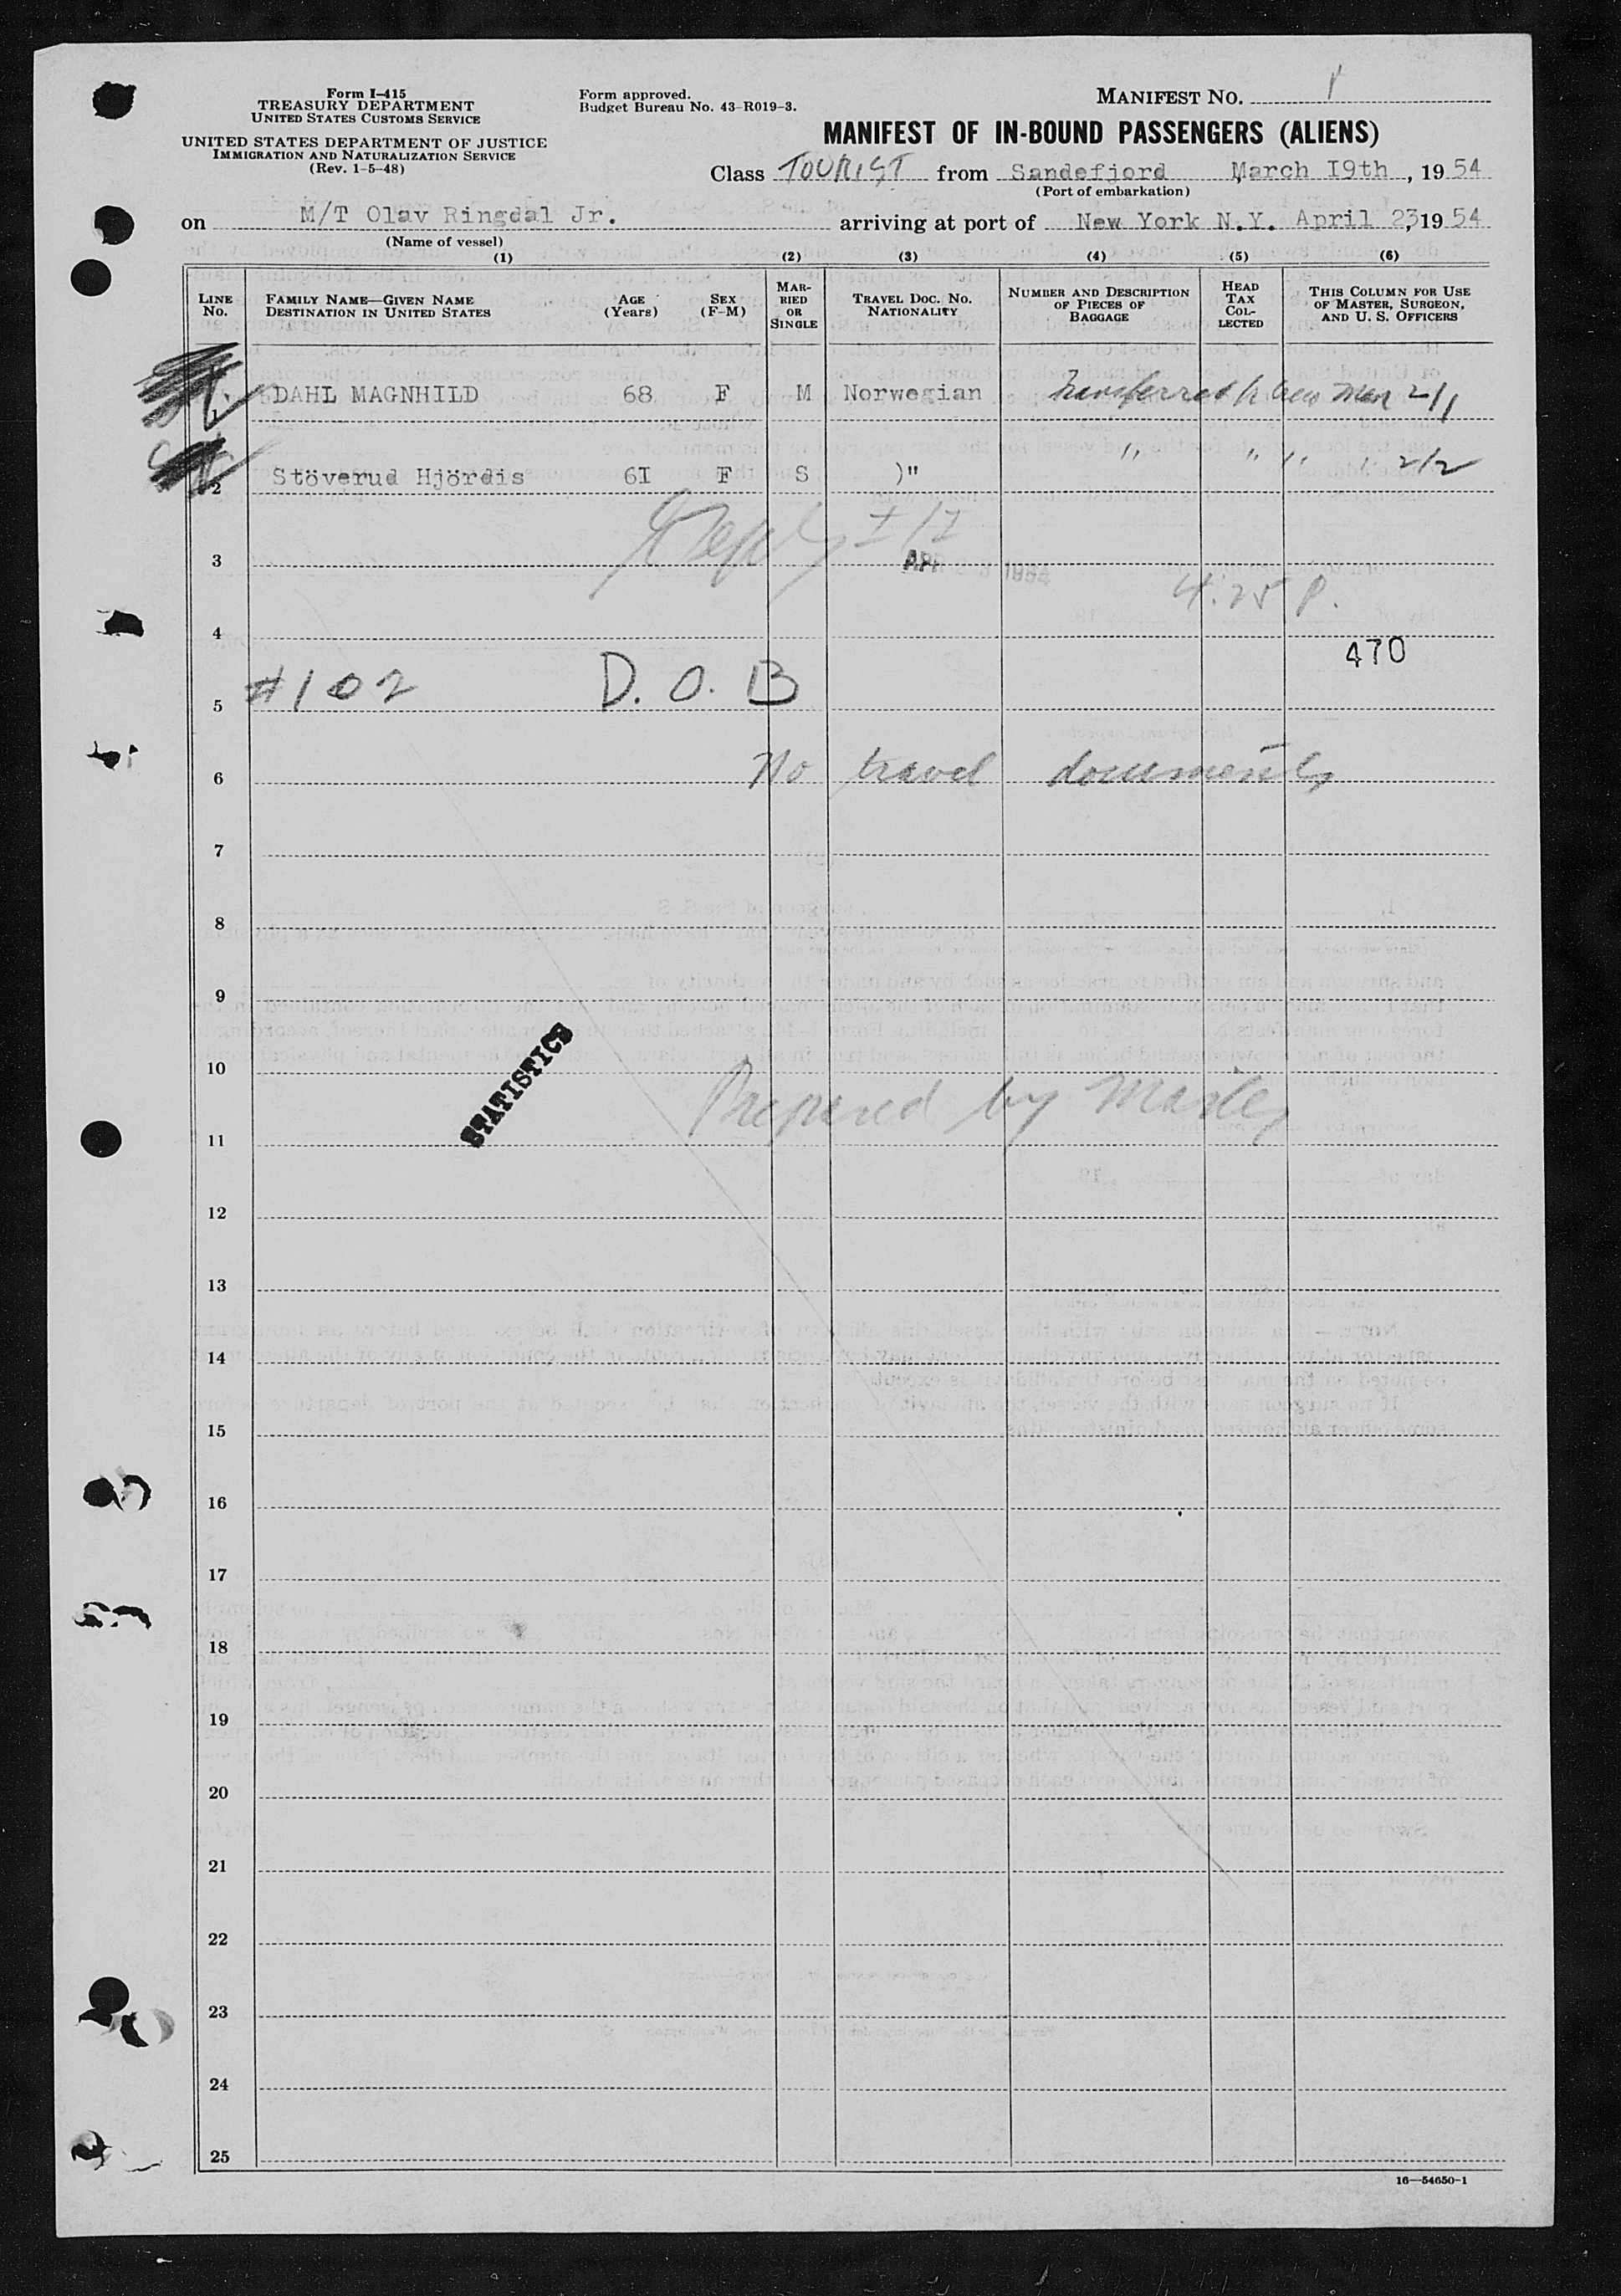 Form I-415
TREASURY DEPARTMENT
UNITED STATES CUSTOMS SERVICE
UNITED STATES DEPARTMENT OF JUSTICE
IMMIGRATION AND NATURALIZATION SERVICE
(Rev. 1-5-48)
Form approved.
Budget Bureau No. 43-R019-3.
MANIFEST NO. 1
MANIFEST OF IN-BOUND PASSENGERS (ALIENS)
Class TOURIST from Sandefjord March I9th, 1954
(Port of embarkation)
on M/T Olav Ringdal Jr. arriving at port of New York N.Y. April 23, 1954
(Name of vessel)
(1) (2) (3) (4) (5) (6)
LINE No. FAMILY NAME—GIVEN NAME DESTINATION IN UNITED STATES AGE (Years) SEX (F-M) MARRIED OR SINGLE TRAVEL DOC. NO. NATIONALITY NUMBER AND DESCRIPTION OF PIECES OF BAGGAGE HEAD TAX COLLECTED THIS COLUMN FOR USE OF MASTER, SURGEON, AND U. S. OFFICERS
1 DAHL MAGNHILD 68 F M Norwegian Transferred to Crew Man 2/1
2 Stöverud Hjördis 6I F S )" " " " 2/2
I/I
3 APR 1954
4:25 P.
4
470
5 #102 D.O.B
6 No travel documents
7
8
9
10
STATISTICS
Prepared by Master
11
12
13
14
15
16
17
18
19
20
21
22
23
24
25
16—54650-1